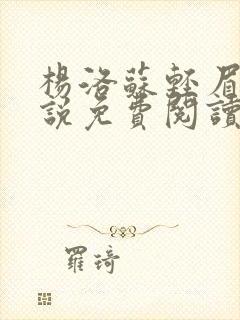 楊洛蘇輕眉
說免費閱讀
羅琦